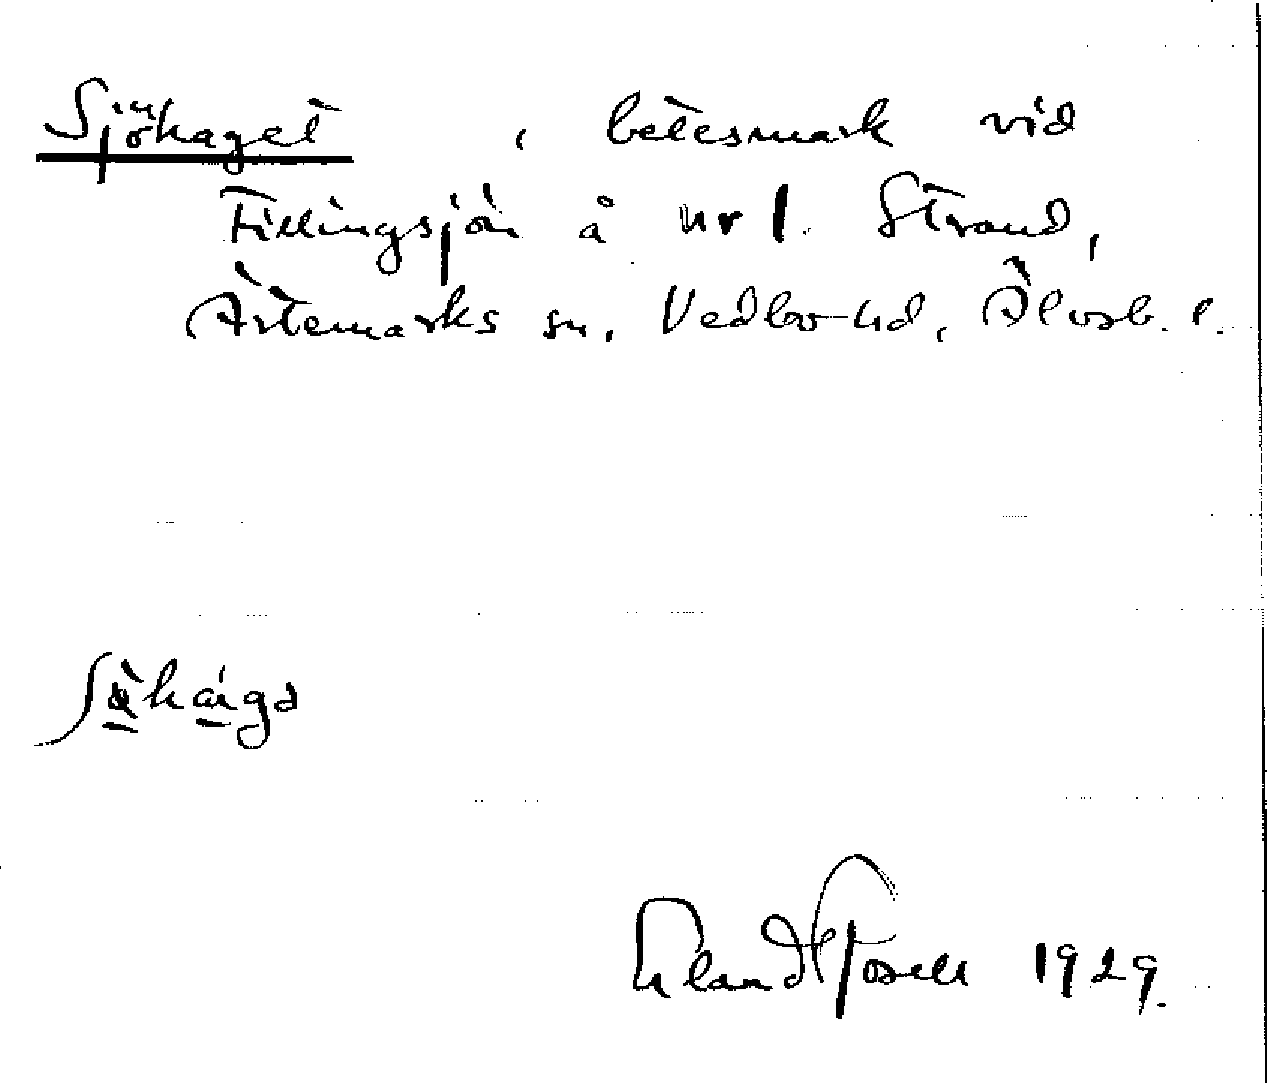 Sjöhaget, betesmark vid
Fillingsjön å nr 1. Strand,
Ärtemarks sn, Vedbo hd, Älvsb. l.
1929.